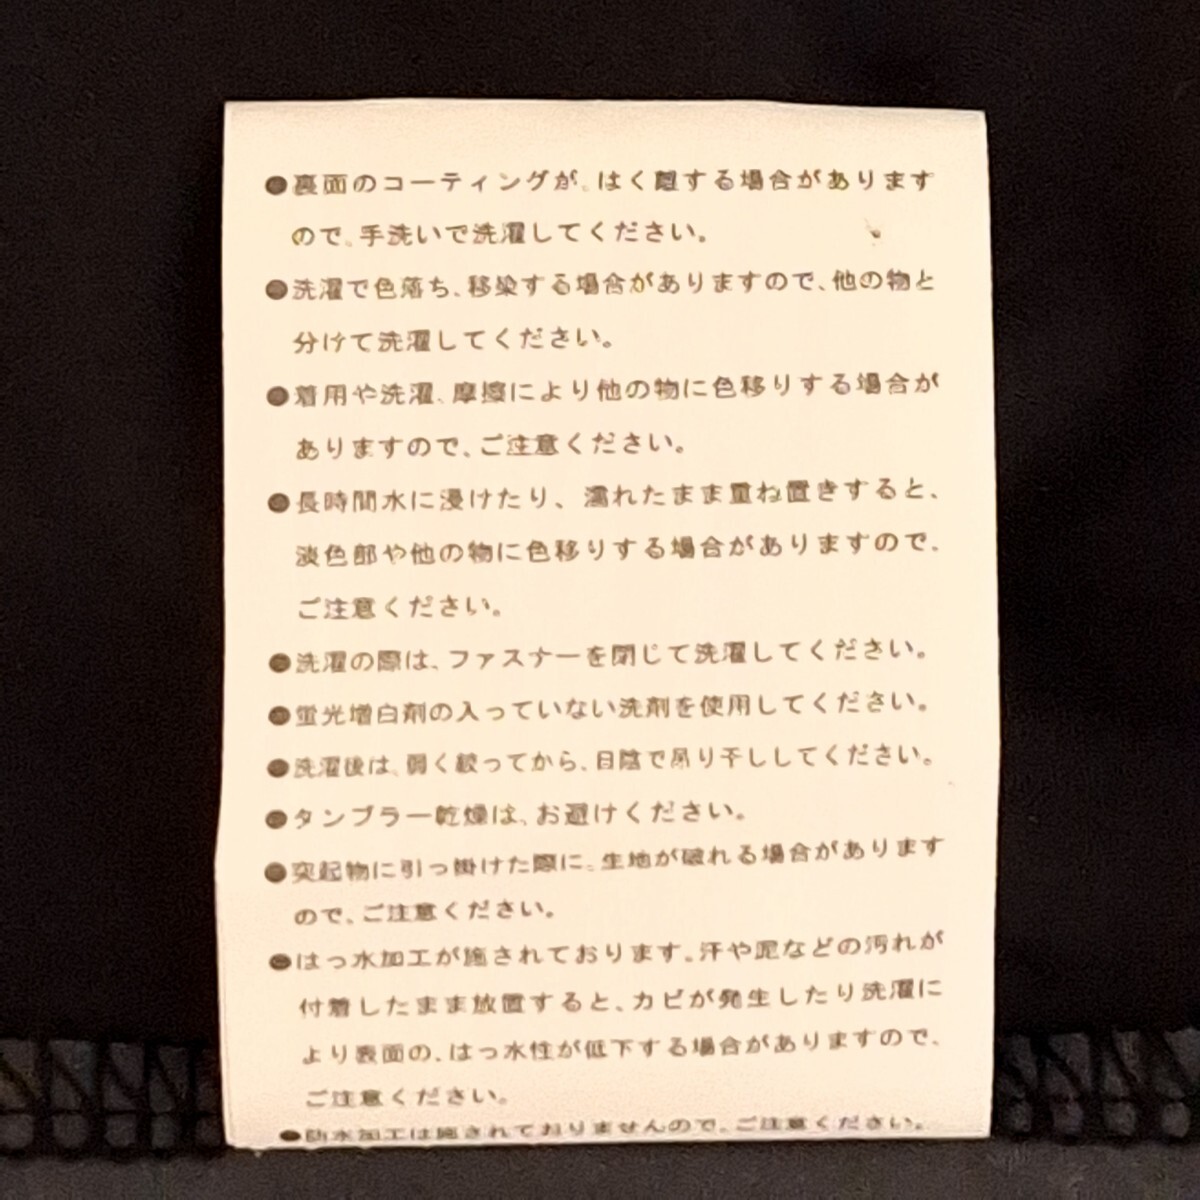 ●裏面のコーティングが、はく離する場合があります
ので、手洗いで洗濯してください。
●洗濯で色落ち、移染する場合がありますので、他の物と
分けて洗濯してください。
●着用や洗濯、摩擦により他の物に色移りする場合が
ありますので、ご注意ください。
●長時間水に浸けたり、濡れたまま重ね置きすると、
淡色部や他の物に色移りする場合がありますので、
ご注意ください。
●洗濯の際は、ファスナーを閉じて洗濯してください。
●蛍光増白剤の入っていない洗剤を使用してください。
●洗濯後は、弱く絞ってから、日陰で吊り干ししてください。
●タンブラー乾燥は、お避けください。
●突起物に引っ掛けた際に、生地が破れる場合があります
ので、ご注意ください。
●はっ水加工が施されております。汗や泥などの汚れが
付着したまま放置すると、カビが発生したり洗濯に
より表面の、はっ水性が低下する場合がありますので、
ご注意ください。
●防水加工は施されておりませんので、ご注意ください。